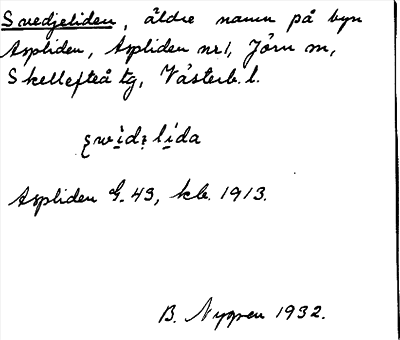 Svedjeliden, äldre namn på byn
Aspliden, Aspliden nr 1, Jörn sn,
Skellefteå tg, Västerb. l.
Aspliden G. 43, kb. 1913.
B. Nygren 1932.